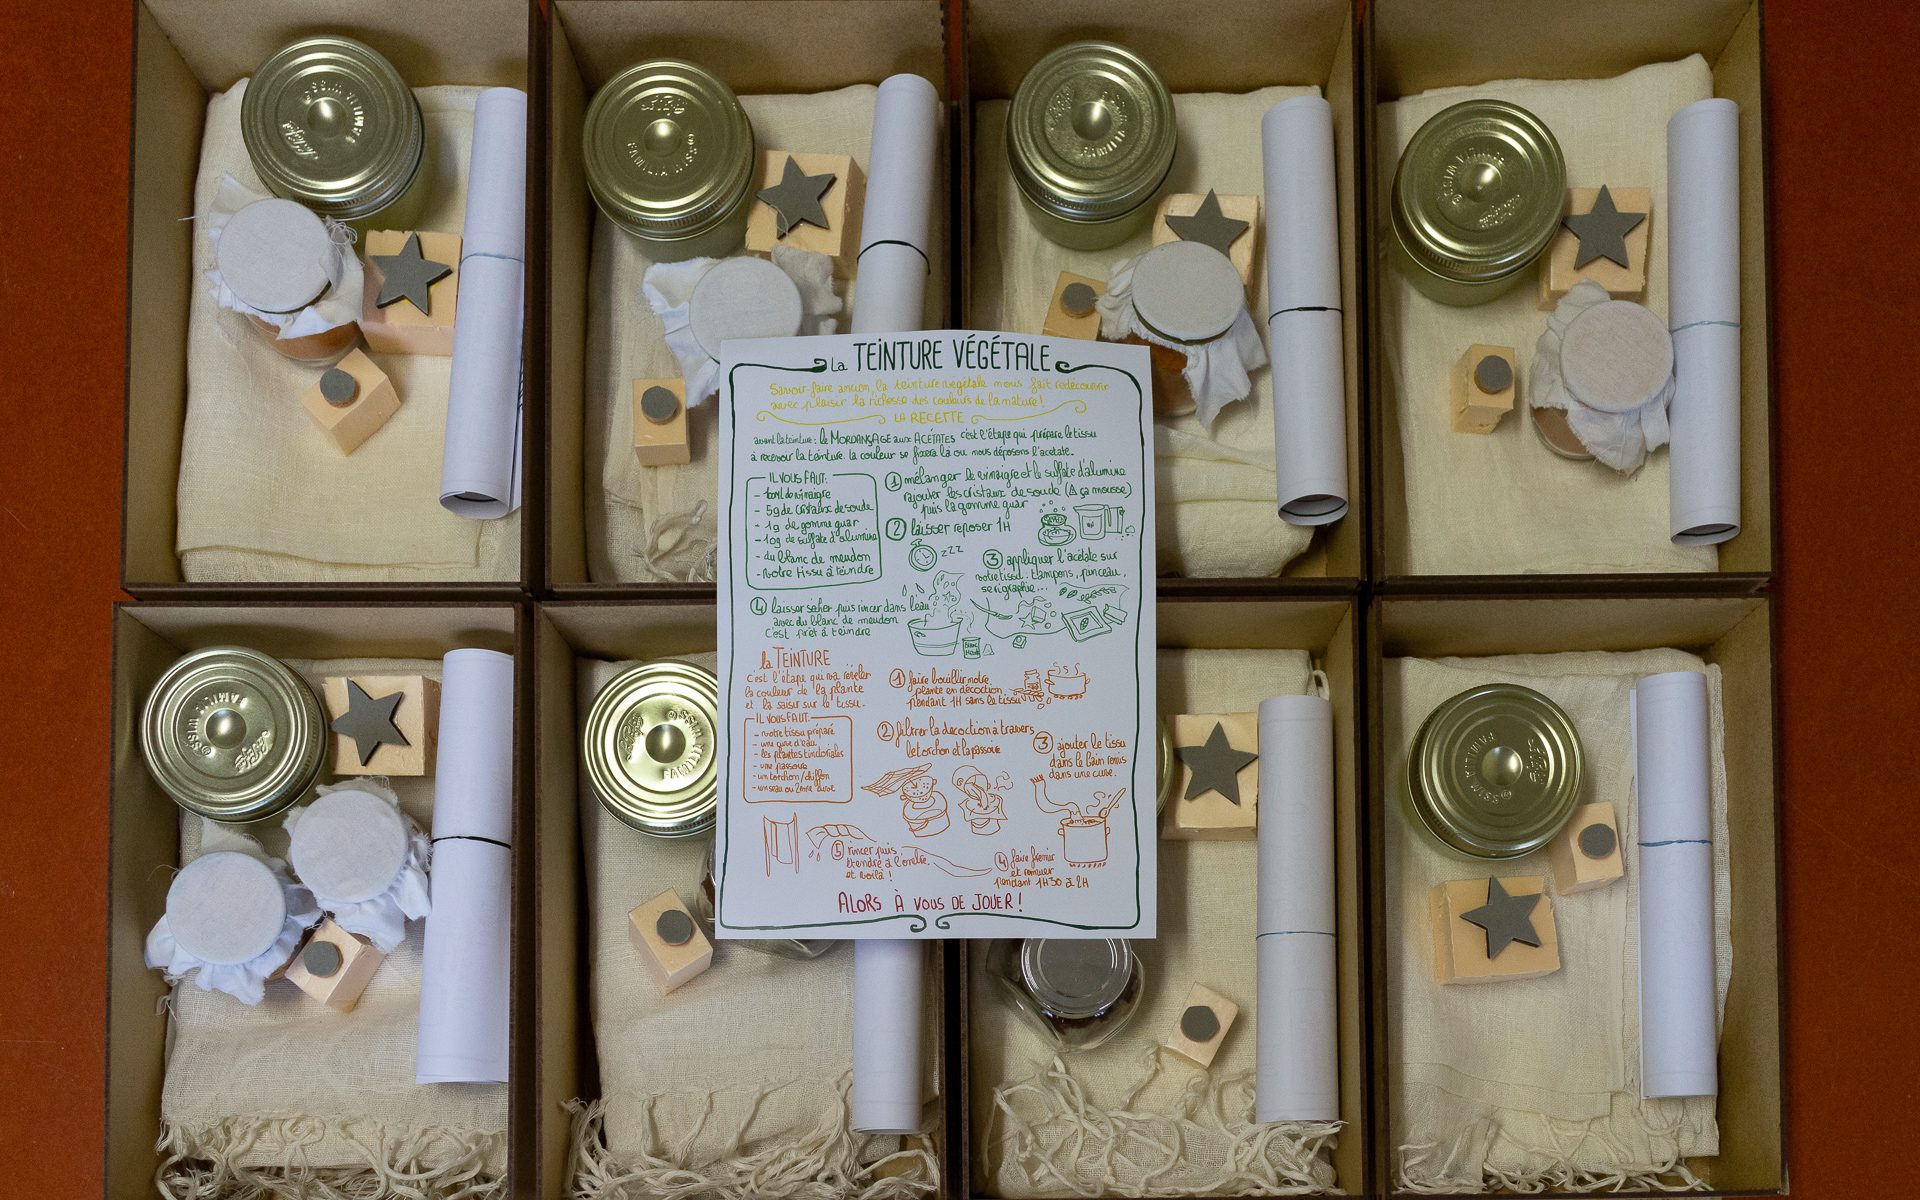 FAMILIA WISS®
FAMILIA WISS®
FAMILIA WISS®
FAMILIA WISS®
La TEINTURE VÉGÉTALE
Savoir-faire ancien, la teinture végétale nous fait redécouvrir
avec plaisir la richesse des couleurs de la nature!
LA RECETTE
avant la teinture: le MORDANÇAGE aux ACÉTATES c'est l'étape qui prépare le tissu
à recevoir la teinture. la couleur se fixera là ou nous déposons l'acétate.
IL VOUS FAUT:
de vinaigre
- 5g de cristaux de soude
- 1g de gomme guar
- 10g de sulfate d'alumine
- du blanc de meudon
- votre tissu à teindre
① mélanger le vinaigre et le sulfate d'alumine
rajouter les cristaux de soude (⚠ ça mousse)
puis la gomme guar
② laisser reposer 1H
zzz
③ appliquer l'acétate sur
votre tissu: tampons, pinceau,
serigraphie...
④ laisser secher puis rincer dans l'eau
avec du blanc de meudon
C'est prêt à teindre
la TEINTURE
c'est l'étape qui va révéler
la couleur de la plante
et la saisir sur le tissu.
IL VOUS FAUT:
- votre tissu préparé
- une cuve d'eau
- les plantes tinctoriales
- une passoire
- un torchon/chiffon
- un seau ou 2ème cuve
① faire bouillir notre
plante en décoction
pendant 1H sans le tissu
② filtrer la décoction à travers
le torchon et la passoire
③ ajouter le tissu
dans le bain remis
dans une cuve.
④ faire frémir
et remuer
pendant 1H30 à 2H
⑤ rincer puis
étendre à l'ombre.
et voilà!
ALORS À VOUS DE JOUER!
FAMILIA WISS®
FAMILIA WISS®
FAMILIA WISS®